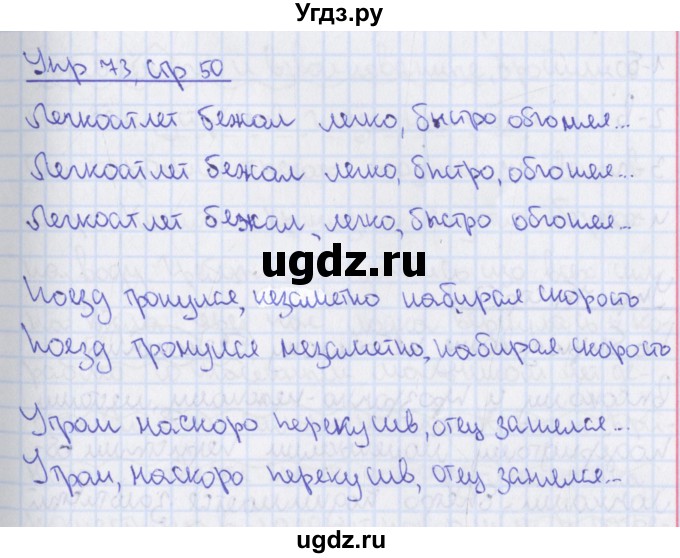 Угдз.ру
Упр 73, стр 50
Легкоатлет бежал легко, быстро обгоняя...
Легкоатлет бежал легко, быстро, обгоняя...
Легкоатлет бежал, легко, быстро обгоняя...
ugdz.ru
Поезд тронулся, незаметно набирая скорость
Поезд тронулся незаметно, набирая скорость
Утром наскоро перекусив, отец занялся...
Утром, наскоро перекусив, отец занялся...
ugdz.ru